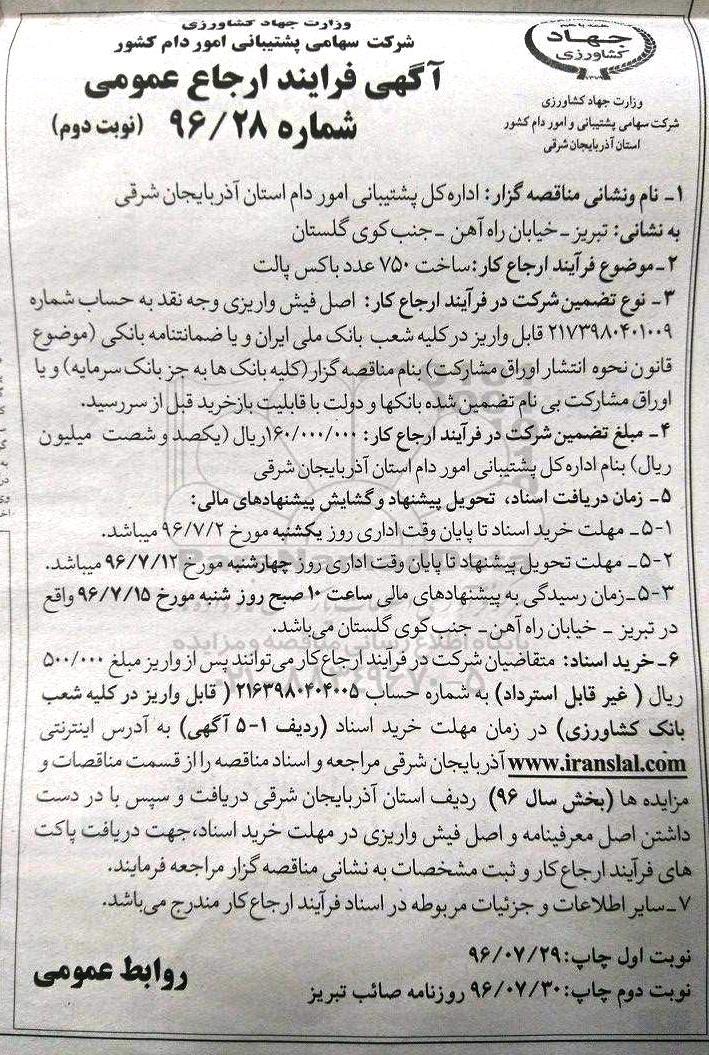 وزارت جهاد کشاورزی
شرکت سهامی پشتیبانی امور دام کشور
آگهی فرایند ارجاع عمومی
شماره ۹۶/۲۸ (نوبت دوم)
جهاد
کشاورزی
وزارت جهاد کشاورزی
شرکت سهامی پشتیبانی و امور دام کشور
استان آذربایجان شرقی
۱ـ نام ونشانی مناقصه گزار: اداره کل پشتیبانی امور دام استان آذربایجان شرقی
به نشانی: تبریز ـ خیابان راه آهن ـ جنب کوی گلستان
۲ـ موضوع فرآیند ارجاع کار: ساخت ۷۵۰ عدد باکس پالت
۳ـ نوع تضمین شرکت در فرآیند ارجاع کار: اصل فیش واریزی وجه نقد به حساب شماره
۲۱۷۳۹۸۰۴۰۱۰۰۹ قابل واریز در کلیه شعب بانک ملی ایران و یا ضمانتنامه بانکی (موضوع
قانون نحوه انتشار اوراق مشارکت) بنام مناقصه گزار (کلیه بانک ها به جز بانک سرمایه) و یا
اوراق مشارکت بی نام تضمین شده بانکها و دولت با قابلیت بازخرید قبل از سررسید.
۴ـ مبلغ تضمین شرکت در فرآیند ارجاع کار: ۱۶۰/۰۰۰/۰۰۰ریال (یکصد و شصت میلیون
ریال) بنام اداره کل پشتیبانی امور دام استان آذربایجان شرقی
۵ـ زمان دریافت اسناد، تحویل پیشنهاد و گشایش پیشنهادهای مالی:
۵-۱ـ مهلت خرید اسناد تا پایان وقت اداری روز یکشنبه مورخ ۹۶/۷/۲ میباشد.
۵-۲ـ مهلت تحویل پیشنهاد تا پایان وقت اداری روز چهارشنبه مورخ ۹۶/۷/۱۲ میباشد.
۵-۳ـ زمان رسیدگی به پیشنهادهای مالی ساعت ۱۰ صبح روز شنبه مورخ ۹۶/۷/۱۵ واقع
در تبریز ـ خیابان راه آهن ـ جنب کوی گلستان می‌باشد.
۶ـ خرید اسناد: متقاضیان شرکت در فرآیند ارجاع کار می‌توانند پس از واریز مبلغ ۵۰۰/۰۰۰
ریال ( غیر قابل استرداد) به شماره حساب ۲۱۶۳۹۸۰۴۰۴۰۰۵ ( قابل واریز در کلیه شعب
بانک کشاورزی) در زمان مهلت خرید اسناد (ردیف ۱-۵ آگهی) به آدرس اینترنتی
www.iranslal.com آذربایجان شرقی مراجعه و اسناد مناقصه را از قسمت مناقصات و
مزایده ها (بخش سال ۹۶) ردیف استان آذربایجان شرقی دریافت و سپس با در دست
داشتن اصل معرفینامه و اصل فیش واریزی در مهلت خرید اسناد،جهت دریافت پاکت
های فرآیند ارجاع کار و ثبت مشخصات به نشانی مناقصه گزار مراجعه فرمایند.
۷ـ سایر اطلاعات و جزئیات مربوطه در اسناد فرآیند ارجاع کار مندرج می‌باشد.
نوبت اول چاپ: ۹۶/۰۷/۲۹
نوبت دوم چاپ: ۹۶/۰۷/۳۰ روزنامه صائب تبریز
روابط عمومی